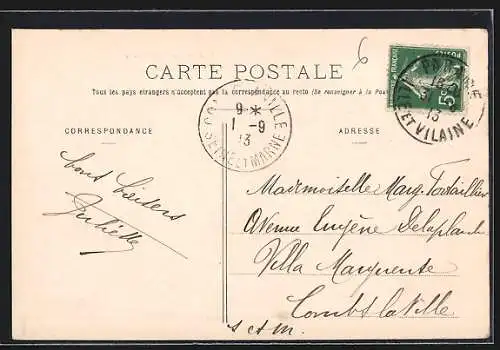 CARTE POSTALE
Tous les pays étrangers n'acceptent pas la correspondance au recto (Se renseigner à la Poste)
CORRESPONDANCE
ADRESSE
9 *
1 - 9
13
SEINE ET MARNE
5c
13
ILLE ET VILAINE
6
bons baisers
Juliette
Mademoiselle Marg.
Avenue Eugène Delaplanche
Villa Marguerite
Combs la Ville
S et M.